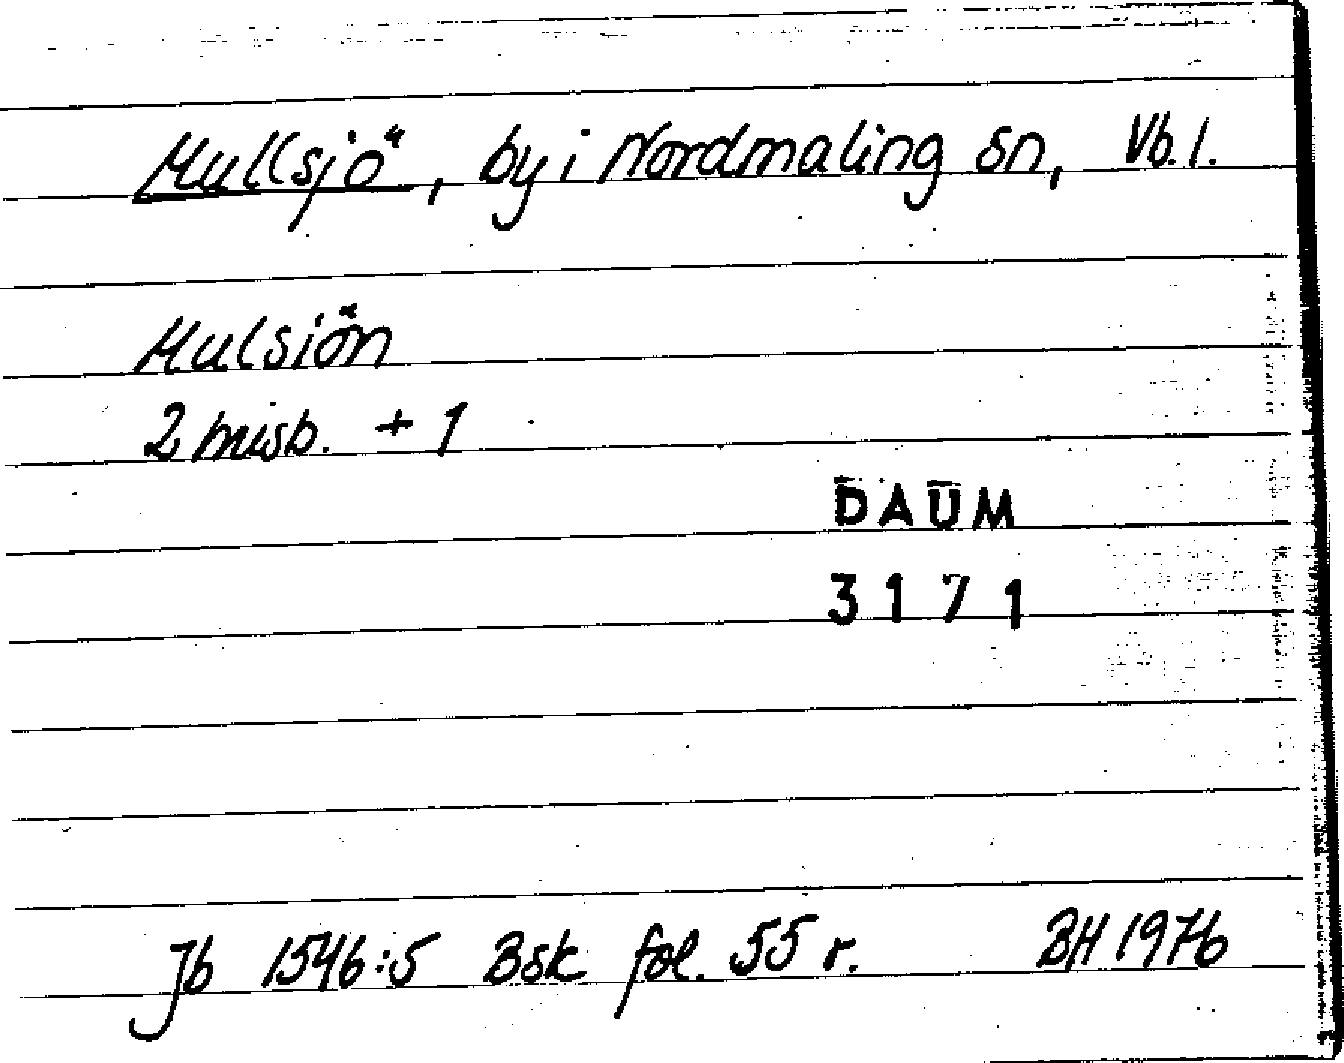 Mullsjö, by i Nordmaling sn, Vb. l.
Mulsiön
2 misb. + 1
DAUM
3171
Jb 1546:5 Bsk fol. 55 r. BH 1976